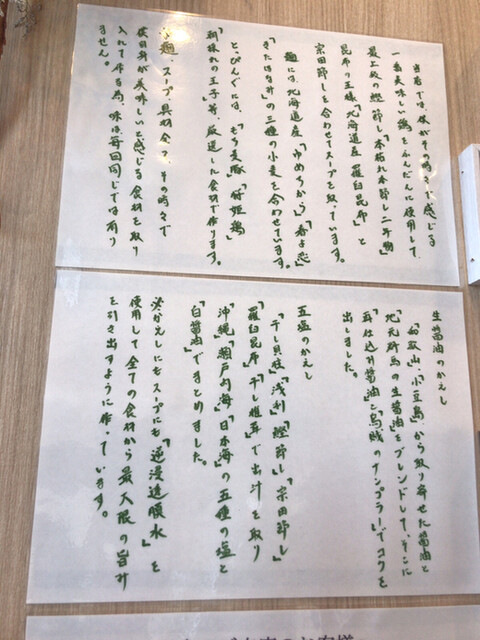 当店では、僕がその時々で感じる
一番美味しい鶏をふんだんに使用して、
最上級の鰹節し「本枯れ本節し二年物」
昆布の王様「北海道産 羅臼昆布」と
宗田節しを合わせてスープを取っています。
麺には、北海道産「ゆめちから」「春よ恋」
「きたほなみ」の三種の小麦を合わせています。
とっぴんぐには、「もち麦豚」「村越鶏」
「朝採れの玉子」等、厳選した食材で作ります。
麺、スープ、具材全て、その時々で
僕自身が美味しいと感じる食材を取り
入れて作る為、味は毎回同じでは有り
ません。
生醤油のかえし
「和歌山」「小豆島」から取り寄せた醤油と
「地元群馬の生醤油」をブレンドして、そこに
「再仕込み醤油」と「烏賊のナンプラー」でコクを
出しました。
五塩のかえし
「干し貝柱」「浅利」「鰹節し」「宗田節し」
「羅臼昆布」「干し椎茸」で出汁を取り
「沖縄」「瀬戸内海」「日本海」の五種の塩と
「白醤油」でまとめました。
※かえしにもスープにも「逆浸透膜水」を
使用して全ての食材から最大限の旨み
を引き出すように作っています。